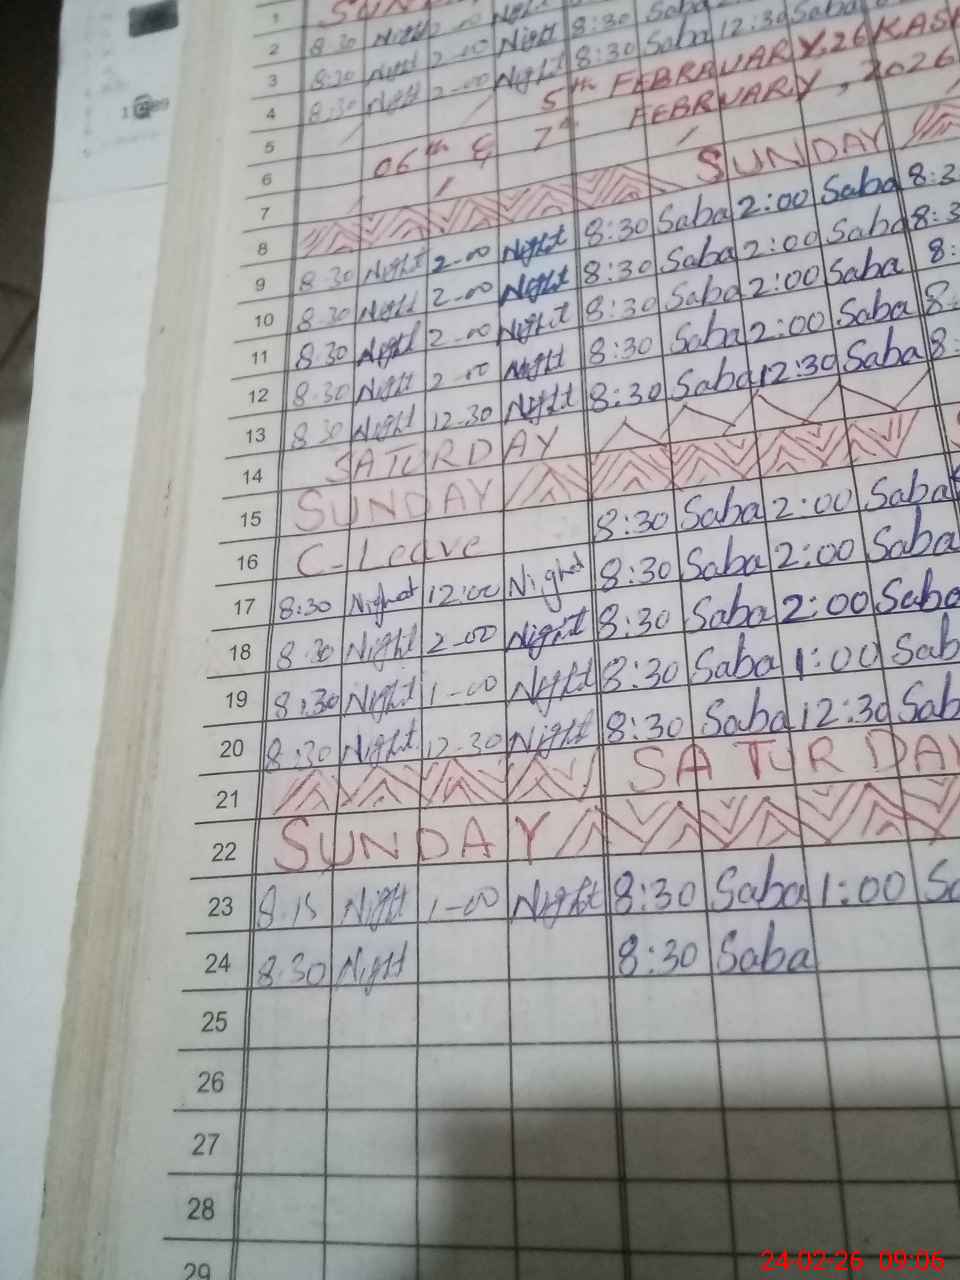 1 SUN
2 8-30 Night 2-00 Night 8:30 Saba
3 8:30 Night 2-00 Night 8:30 Saba 12:30 Saba
4 8:30 Night 2-00 Night 5th FEBRRUARY.26 KAS
5 06th & 7th FEBRUARY, 2026
6
7 SUNDAY
8 8-30 Night 2-00 Night 8:30 Saba 2:00 Saba 8:3
9 8-30 Night 2-00 Night 8:30 Saba 2:00 Saba 8:3
10 8-30 Night 2-00 Night 8:30 Saba 2:00 Saba 8:
11 8-30 Night 2-00 Night 8:30 Saba 2:00 Saba 8:
12 8-30 Night 12-30 Night 8:30 Saba 12:30 Saba 8:
13 SATURDAY
14 SUNDAY
15 C-Leave 8:30 Saba 2:00 Saba
16 8:30 Saba 2:00 Saba
17 8:30 Night 12:00 Night 8:30 Saba 2:00 Saba
18 8-30 Night 2-00 Night 8:30 Saba 1:00 Sab
19 8:30 Night 1-00 Night 8:30 Saba 12:30 Sab
20 8:30 Night 12-30 Night SATURDAY
21
22 SUNDAY
23 8-15 Night 1-00 Night 8:30 Saba 1:00 Sa
24 8-30 Night 8:30 Saba
25
26
27
28
29
24-02-26 09:06